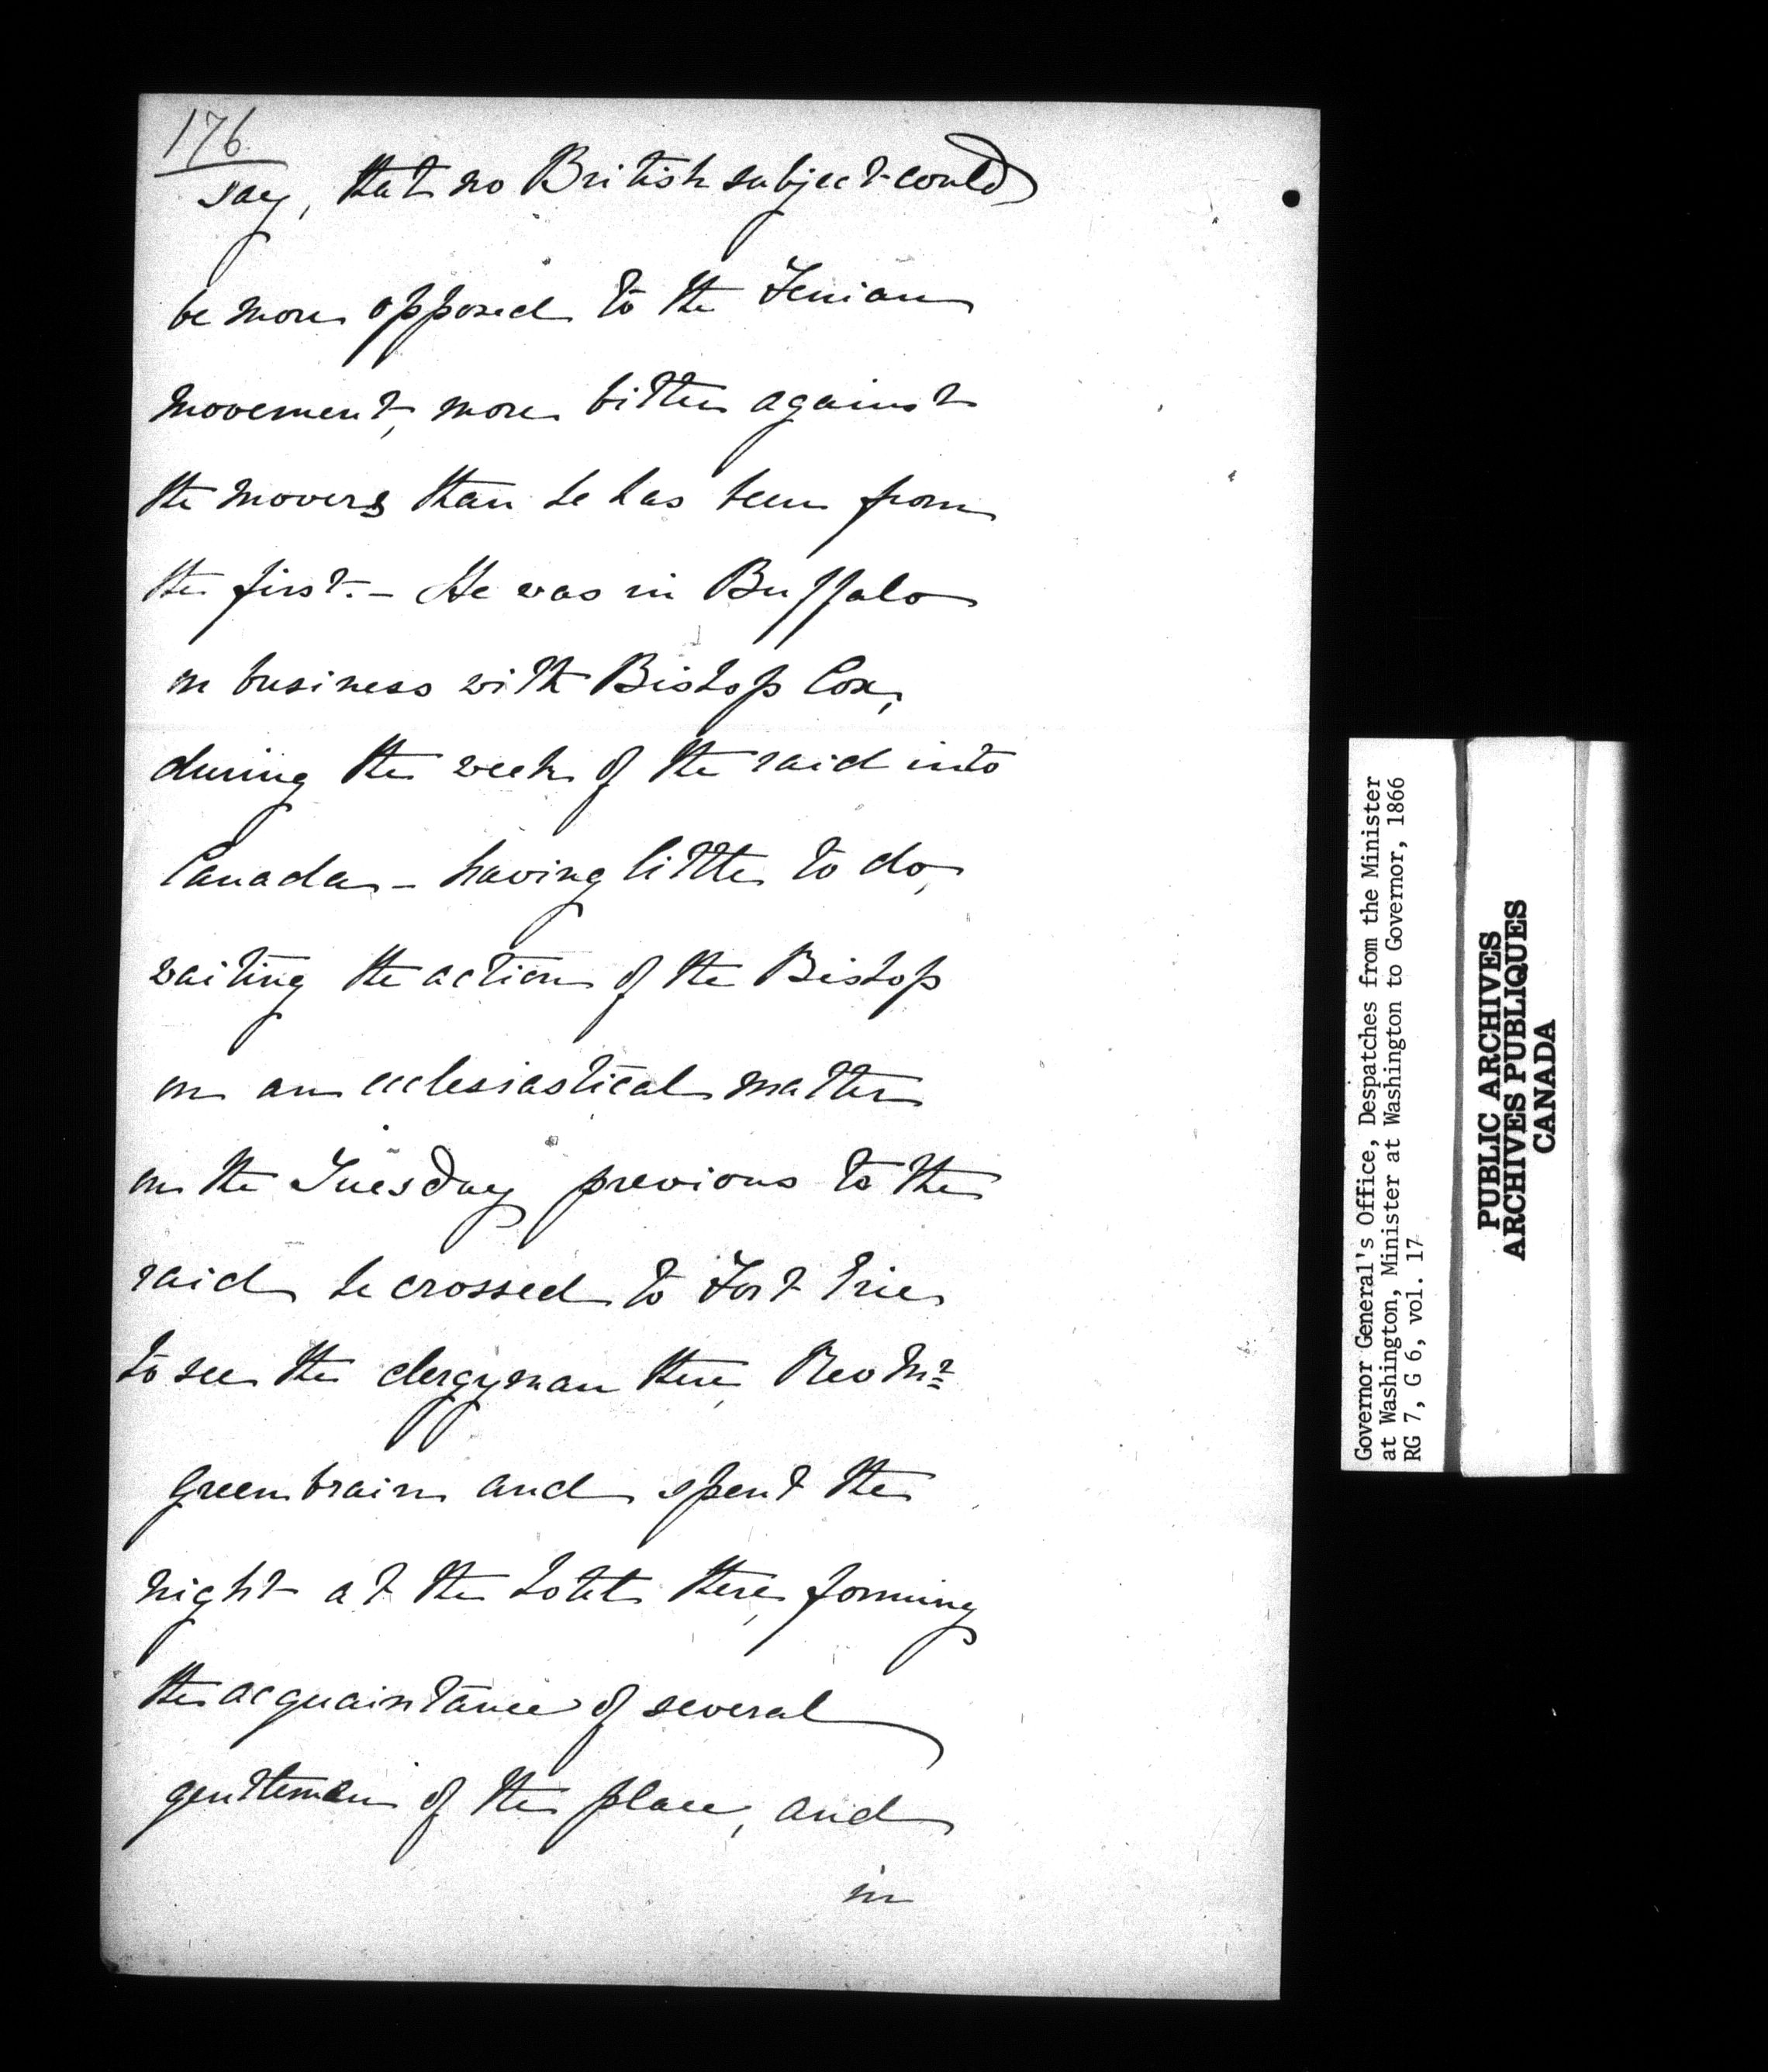 176
say, that no British subject could
be more opposed to the Fenian
movement, more bitter against
the movers than he has been from
the first. - He was in Buffalo
on business with Bishop Cox,
during the week of the raid into
Canada - having little to do,
waiting the action of the Bishop
on an ecclesiastical matter
on the Tuesday previous to the
raid he crossed to Fort Erie
to see the clergyman there, Rev Mr
Greenbrain and spent the
night at the hotel there, forming
the acquaintance of several
gentlemen of the place, and
in
Governor General's Office, Despatches from the Minister
at Washington, Minister at Washington to Governor, 1866
RG 7, G 6, vol. 17
PUBLIC ARCHIVES
ARCHIVES PUBLIQUES
CANADA